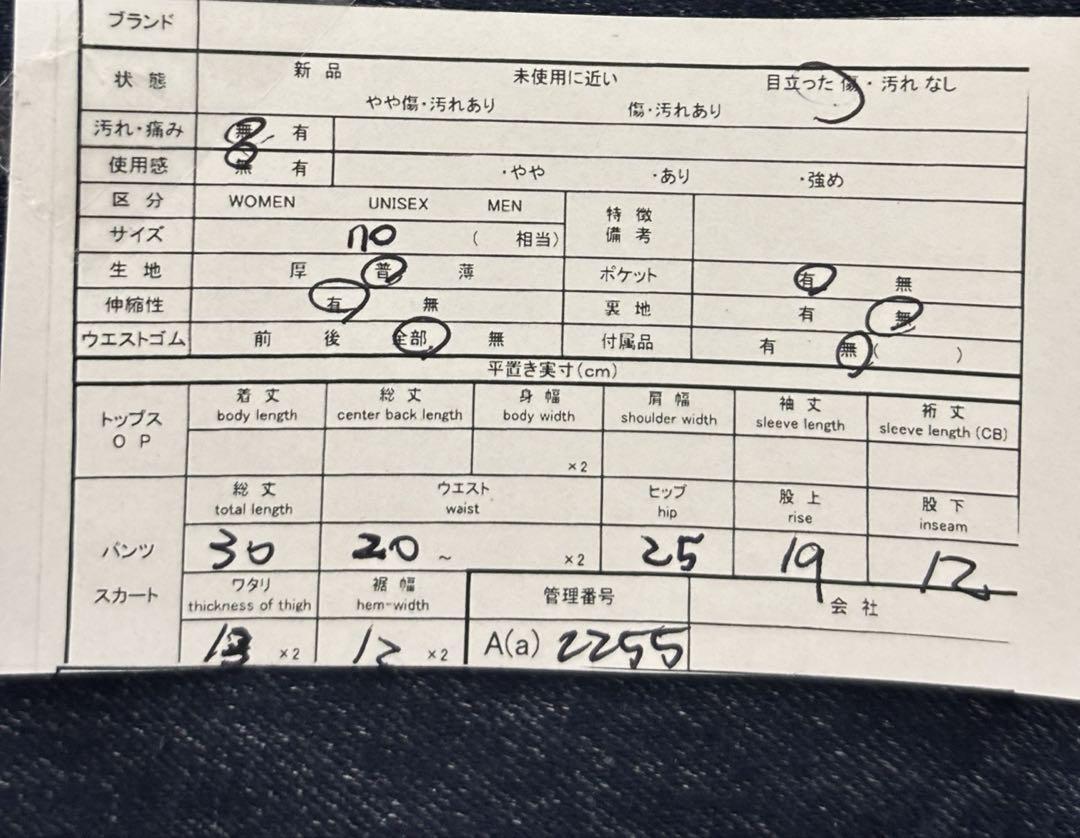 ブランド
状態 新品 未使用に近い 目立った傷・汚れなし
やや傷・汚れあり 傷・汚れあり
汚れ・痛み 無 有
使用感 無 有 ・やや ・あり ・強め
区分 WOMEN UNISEX MEN 特徴
サイズ 110 ( 相当) 備考
生地 厚 普 薄 ポケット 有 無
伸縮性 有 無 裏地 有 無
ウエストゴム 前 後 全部 無 付属品 有 無 ( )
平置き実寸(cm)
トップス 着丈 総丈 身幅 肩幅 袖丈 裄丈
OP body length center back length body width shoulder width sleeve length sleeve length (CB)
×2
総丈 ウエスト ヒップ 股上 股下
total length waist hip rise inseam
パンツ 30 20 ~ ×2 25 19 12
スカート ワタリ 裾幅 管理番号 会社
thickness of thigh hem-width
×2 12 ×2 A(a) 2255